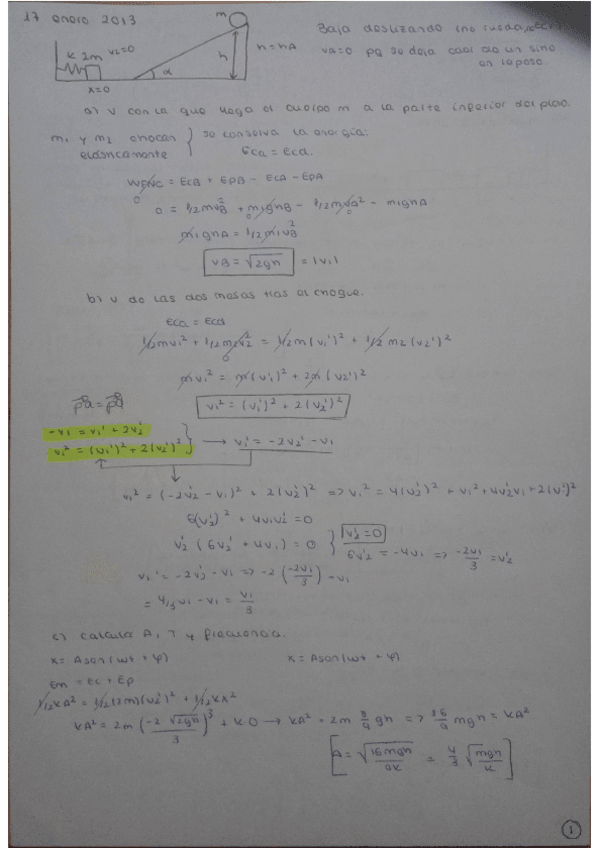 17 enero 2013
m
Baja deslizando (no rueda,
k 2m v2=0
h
h = hA
va=0 pq se deja caer
en reposo
x=0
α
a) v con la que llega el cuerpo m a la parte inferior del plano.
m1 y m2 chocan } se conserva la energía:
elásticamente Eca = Ecd.
WFNC = EcB + EpB - EcA - EpA
0
0 = 1/2 mvB² + m1ghB - 1/2 mvA² - m1ghA
0 0
m1ghA = 1/2 m1vB²
vB = √2gh = |v1|
b) v de las dos masas tras el choque.
Eca = Ecd
1/2mv1² + 1/2m2v2² = 1/2m(v1')² + 1/2 m2 (v2')²
0
mv1² = m(v1')² + 2m(v2')²
v1² = (v1')² + 2(v2')²
-v1 = v1' + 2v2'
v1² = (v1')² + 2(v2')² } → v1' = -2v2' - v1
v1² = (-2v2' - v1)² + 2(v2')² => v1² = 4(v2')² + v1² + 4v2'v1 + 2(v2')²
6(v2')² + 4v1v2' = 0
v2' (6v2' + 4v1) = 0 } v2' = 0
6v2' = -4v1 => -2v1/3 = v2'
v1' = -2v2' - v1 => -2 (-2v1/3) - v1
= 4/3 v1 - v1 = v1/3
c) calcula A, T y frecuencia.
x = Asen(wt + φ) x = Asen(wt + φ)
Em = Ec + Ep
1/2kA² = 1/2(2m)(v2')² + 1/2kx²
kA² = 2m (-2 √2gh / 3)² + k0 → kA² = 2m 8/9 gh => 16/9 mgh = kA²
[A = √16mgh/9k = 4/3 √mgh/k]
1